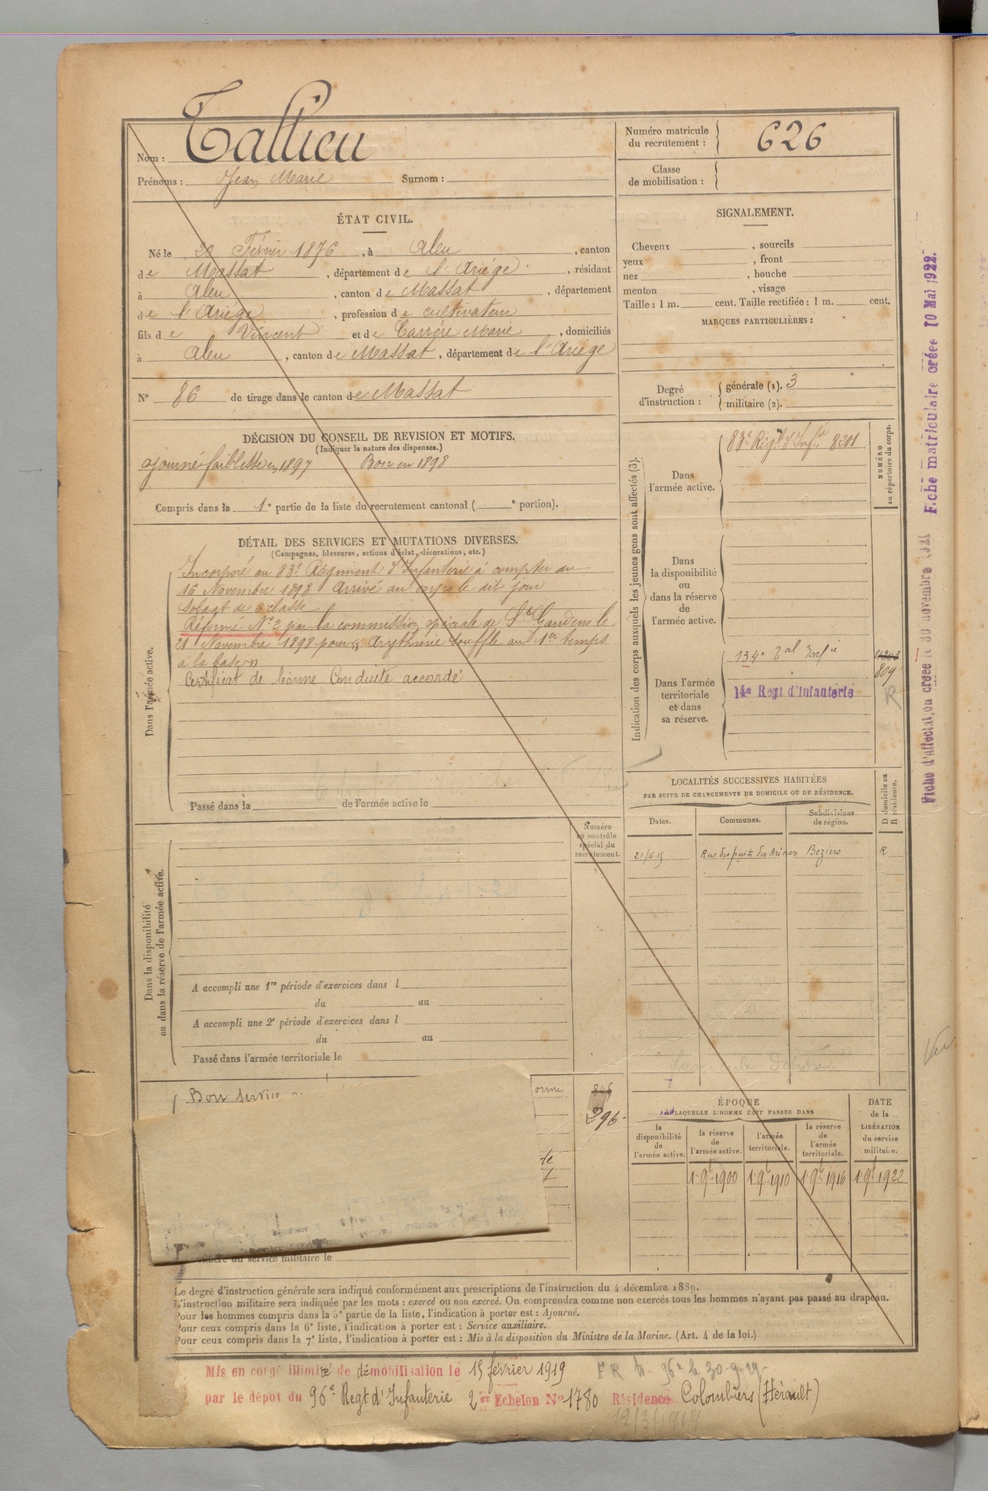 Nom : Tallieu
Prénoms : Jean Marie Surnom :
Numéro matricule du recrutement : 626
Classe de mobilisation :
ÉTAT CIVIL.
Né le 20 Février 1876, à Aleu, canton
de Massat, département de l'Ariège, résidant
à Aleu, canton de Massat, département
de l'Ariège, profession de cultivateur
fils de Vincent et de Carrère Marie, domiciliés
à Aleu, canton de Massat, département de l'Ariège
N° 86 de tirage dans le canton de Massat
DÉCISION DU CONSEIL DE REVISION ET MOTIFS.
(Indiquer la nature des dispenses.)
ajourné faiblesse en 1897 Bon en 1898
Compris dans la 1e partie de la liste du recrutement cantonal ( e portion).
DÉTAIL DES SERVICES ET MUTATIONS DIVERSES.
(Campagnes, blessures, actions d'éclat, décorations, etc.)
Dans l'armée active.
Incorporé au 83e Régiment d'Infanterie à compter du
16 Novembre 1898 Arrivé au corps le dit jour
Soldat de 2e classe
Réformé N° 2 par la commission spéciale de St Gaudens le
21 Novembre 1898 pour Arythmie souffle au 1er temps
à la base
Certificat de bonne Conduite accordé
Passé dans la de l'armée active le
Numéro au contrôle spécial du recrutement.
Dans la disponibilité ou dans la réserve de l'armée active.
A accompli une 1re période d'exercices dans l
du au
A accompli une 2e période d'exercices dans l
du au
Passé dans l'armée territoriale le
Bon service
orme
296
service militaire le
SIGNALEMENT.
Cheveux , sourcils
yeux , front
nez , bouche
menton , visage
Taille : 1 m. cent. Taille rectifiée : 1 m. cent.
MARQUES PARTICULIÈRES :
Degré d'instruction : générale (1). 3
militaire (2).
Indication des corps auxquels les jeunes gens sont affectés (3).
NUMÉRO au répertoire du corps.
Dans l'armée active. 83e Regt d'Infie 8201
Dans la disponibilité ou dans la réserve de l'armée active.
Dans l'armée territoriale et dans sa réserve.
134e Tal Infie
809
14e Regt d'Infanterie R
LOCALITÉS SUCCESSIVES HABITÉES
PAR SUITE DE CHANGEMENTS DE DOMICILE OU DE RÉSIDENCE.
Dates. Communes. Subdivisions de région. D domicile ou R résidence.
21/6/15 Rue du puits des Arènes Beziers R
ÉPOQUE
A LAQUELLE L'HOMME DOIT PASSER DANS
DATE de la LIBÉRATION du service militaire.
la disponibilité de l'armée active. la réserve de l'armée active. l'armée territoriale. la réserve de l'armée territoriale.
1 9bre 1900 1 9bre 1910 1 9bre 1916 1 9bre 1922
Le degré d'instruction générale sera indiqué conformément aux prescriptions de l'instruction du 4 décembre 1889.
L'instruction militaire sera indiquée par les mots : exercé ou non exercé. On comprendra comme non exercés tous les hommes n'ayant pas passé au drapeau.
Pour les hommes compris dans la 5e partie de la liste, l'indication à porter est : Ajourné.
Pour ceux compris dans la 6e liste, l'indication à porter est : Service auxiliaire.
Pour ceux compris dans la 7e liste, l'indication à porter est : Mis à la disposition du Ministre de la Marine. (Art. 4 de la loi.)
Mis en congé illimité de démobilisation le 15 février 1919
par le dépôt du 96e Regt d'Infanterie 2er Echelon N° 1780 Résidence Colombiers (Hérault)
12/3/1919
Fiche d'affectat. on créée le 30 novembre 1921 Fiche matriculaire créée 10 Mai 1922.